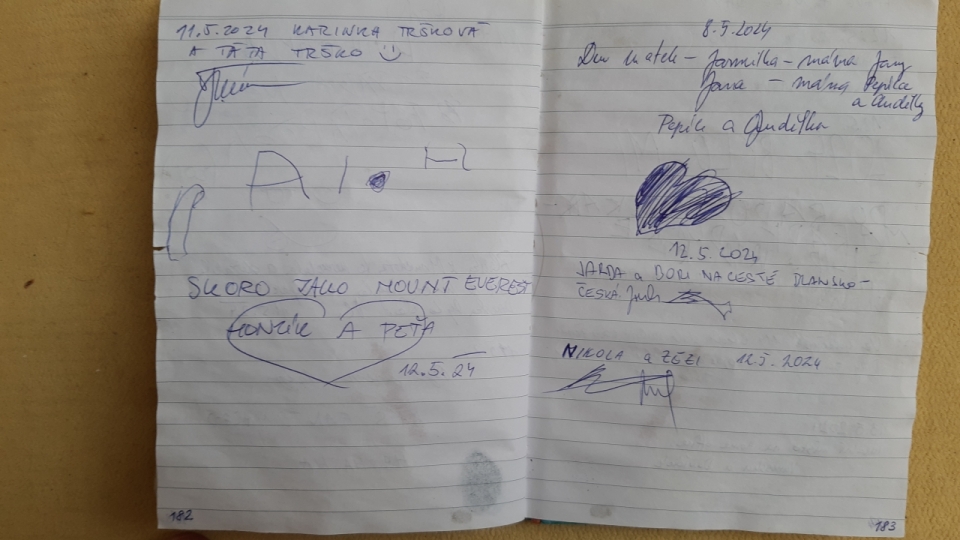 11.5.2024 KARINKA TRŠKOVÁ
A TÁTA TRŠKO :)
A I . H
SKORO JAKO MOUNT EVEREST
HONZÍK A PEŤA
12.5.24
182
8.5.2024
Den matek – Jarmilka – máma Jany
Jana – máma Pepíka
a Andělky
Pepík a Andělka
12.5.2024
JARDA a BORI NA CESTĚ BLANSKO –
ČESKÁ
NIKOLA a ŽEŽI 12.5.2024
183